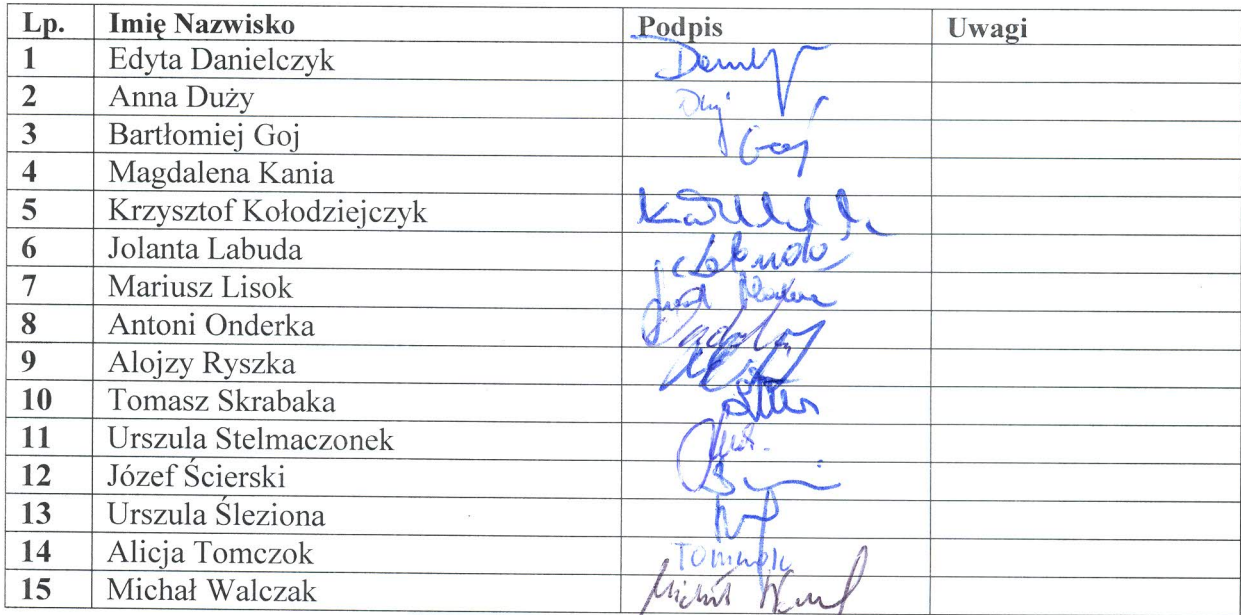 Lp. Imię Nazwisko Podpis Uwagi
1 Edyta Danielczyk
2 Anna Duży
3 Bartłomiej Goj Goj
4 Magdalena Kania
5 Krzysztof Kołodziejczyk
6 Jolanta Labuda
7 Mariusz Lisok
8 Antoni Onderka
9 Alojzy Ryszka
10 Tomasz Skrabaka
11 Urszula Stelmaczonek
12 Józef Ścierski
13 Urszula Śleziona
14 Alicja Tomczok
15 Michał Walczak